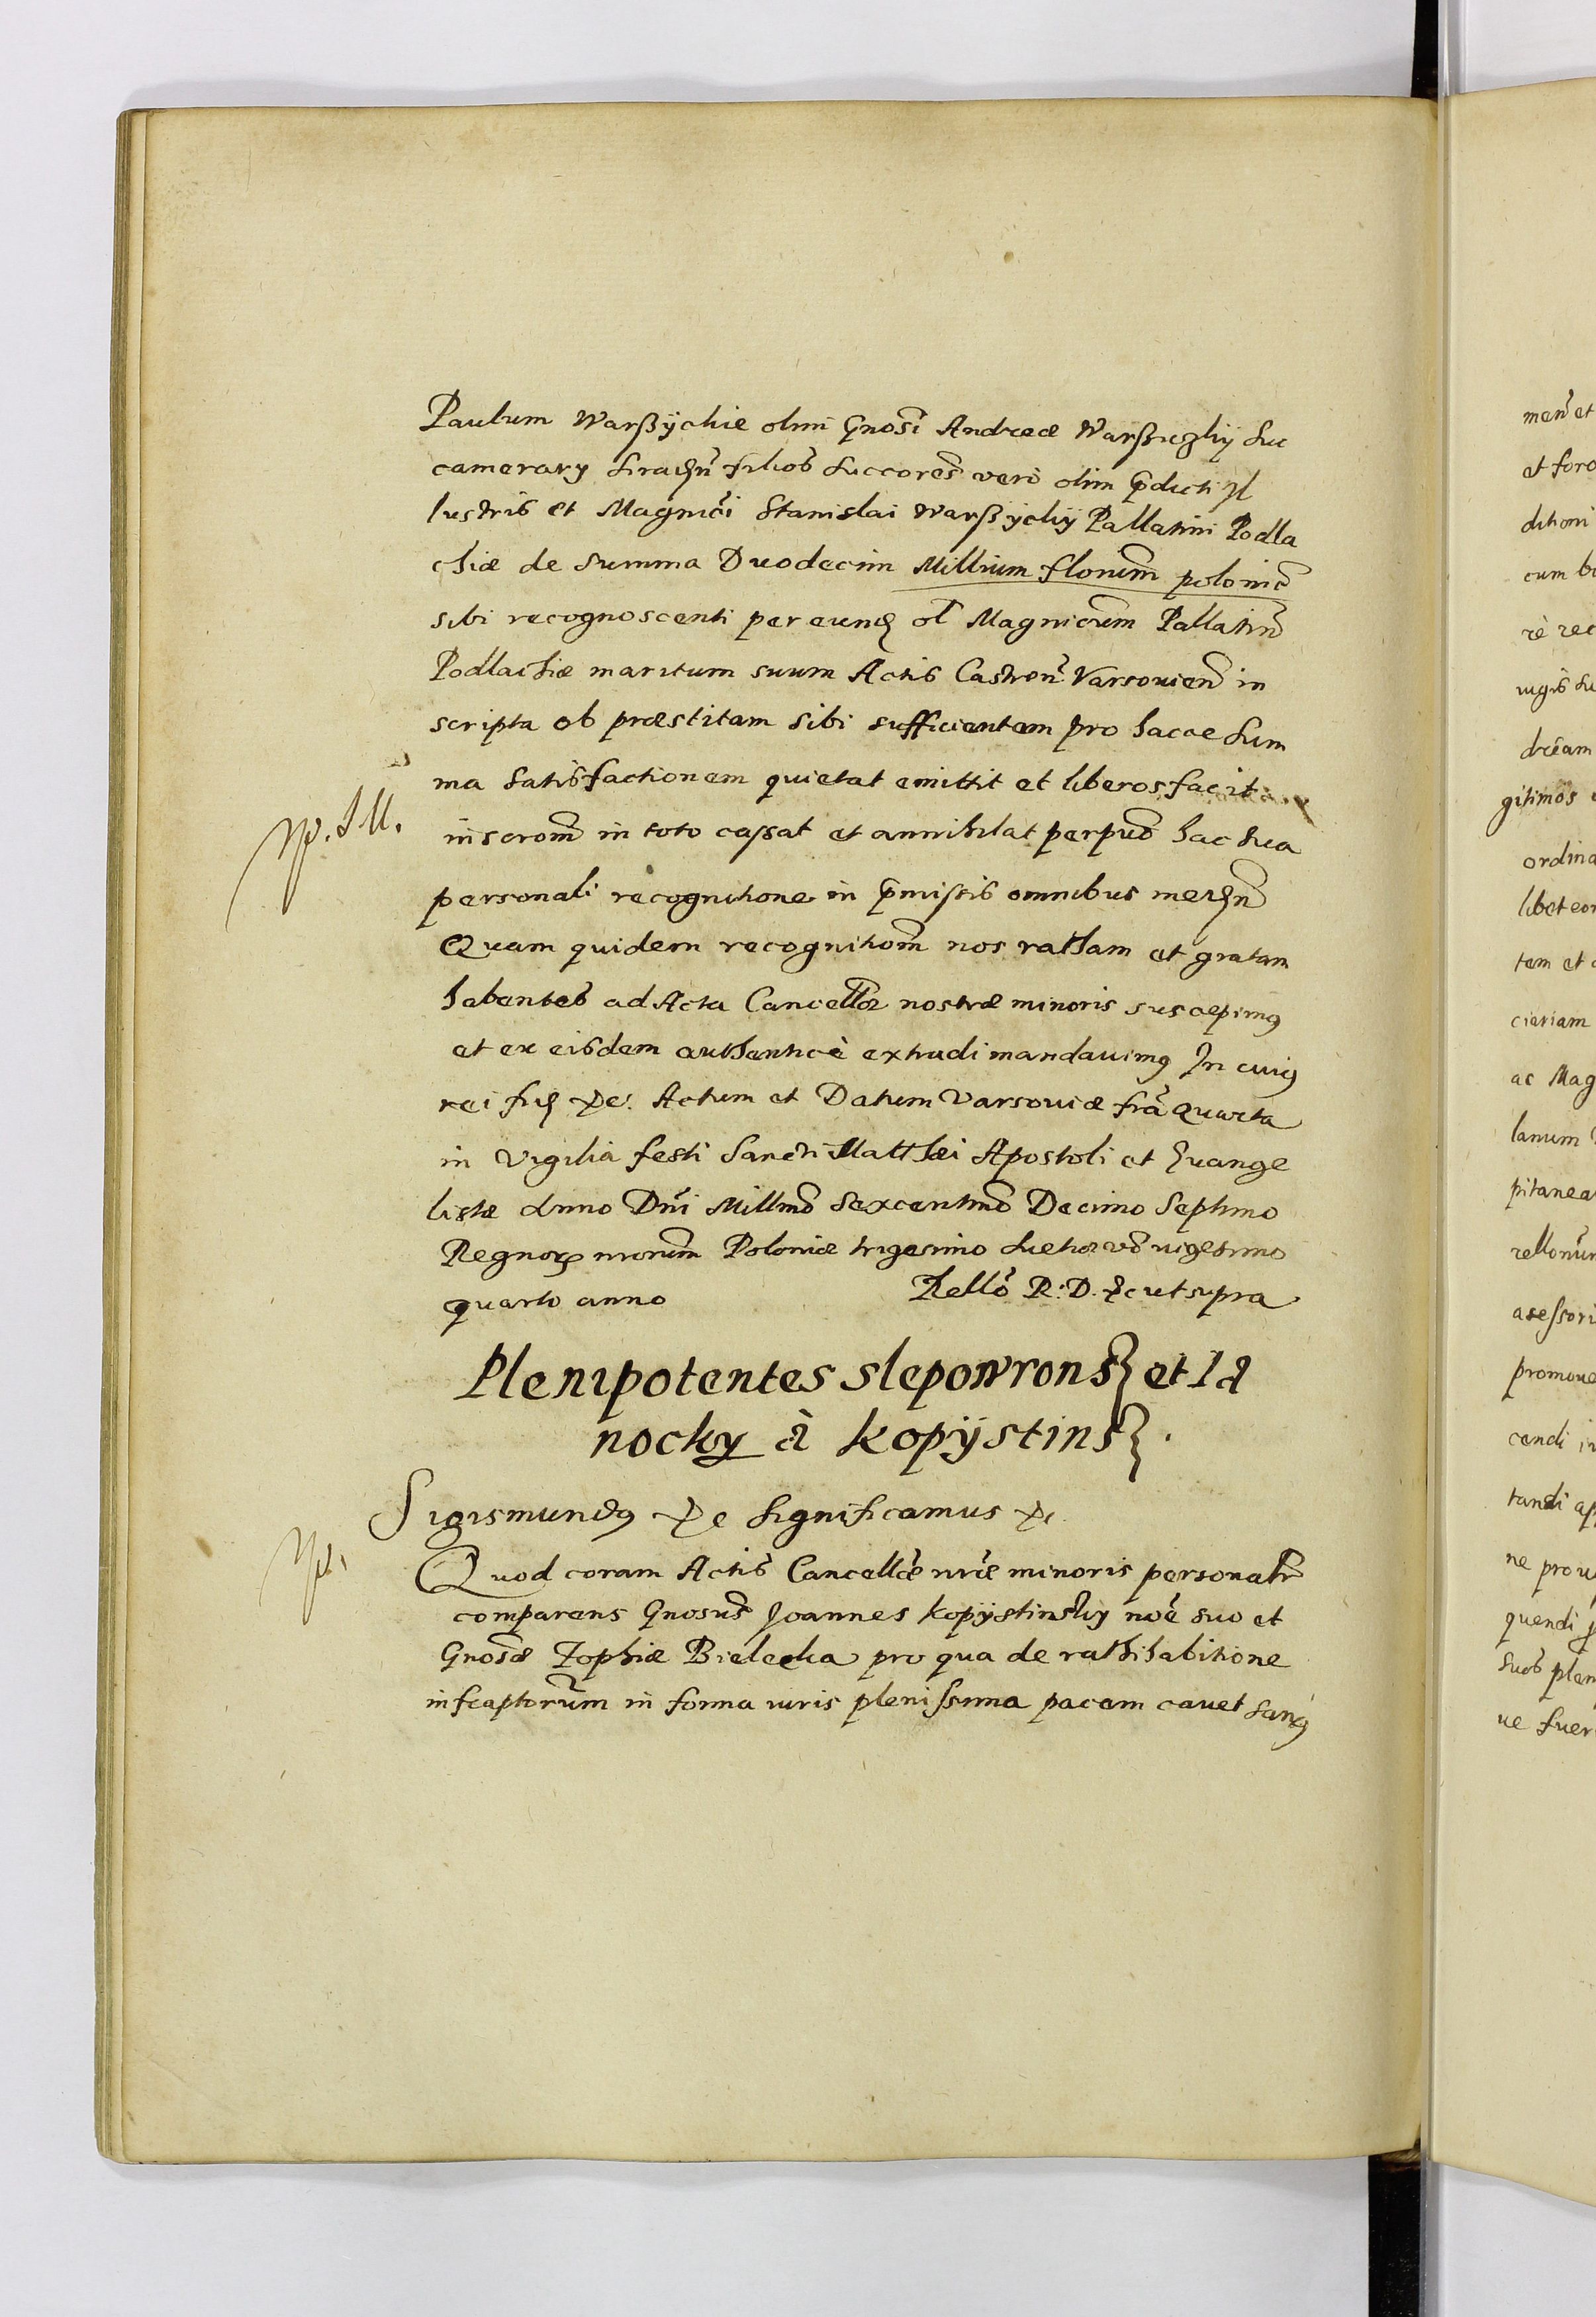 Paulum Warßÿckie olim Gnosi Andreæ Warßickÿ suc
camerary siradzn filios succores vero olim pdicti Il
lustris et Magnici Stanislai Warßÿckÿ Pallatini Podla
chiæ de summa Duodecim Millium florenum polonic
sibi recognoscenti per eund ol Magnicum Pallatin
Podlachiæ maritum suum Actis Castren Varsovien in
scripta ob præstitam sibi sufficientem pro hacce sum
ma satisfactionem quietat emittit et liberos facit
inscrom in toto cassat et annihilat perpuo hac sua
personali recognitione in pmissis omnibus medn
Quam quidem recognitiom nos ratham et gratam
habentes ad Acta Cancellæ nostræ minoris suscepimus
et ex eisdem authenticè extradi mandavimus In cuius
rei fid &c. Actum et Datum Varsoviæ fra Quarta
in Vigilia festi Sancti Matthæi Apostoli et Evange
listæ Anno Dni Millmo Sexcentmo Decimo Septimo
Regnor nrorum Poloniæ trigesimo Suetiæ vo vigesimo
quarto anno Rello R: D. &c ut supra
Plenipotentes Sleponwronsk et Ia
nocky à Kopÿstinsk.
Sigismundus &c Significamus &c
Quod coram Actis Cancellæ nræ minoris personalr
comparens Gnosus Joannes Kopÿstinsky noe suo et
Gnosæ Zophiæ Bielecka pro qua de rathihabitione
infraptorum in forma iuris plenissima pacem cavet sanus
men et
et foro
ditioni
cum
rè rec
dream
gitimos
ordina
libet eor
tem et
ciariam
ac Mag
lanum
pitanea
rellonum
asessori
promove
cendi
tandi
ne pro
quendi
suos plen
ue fuer